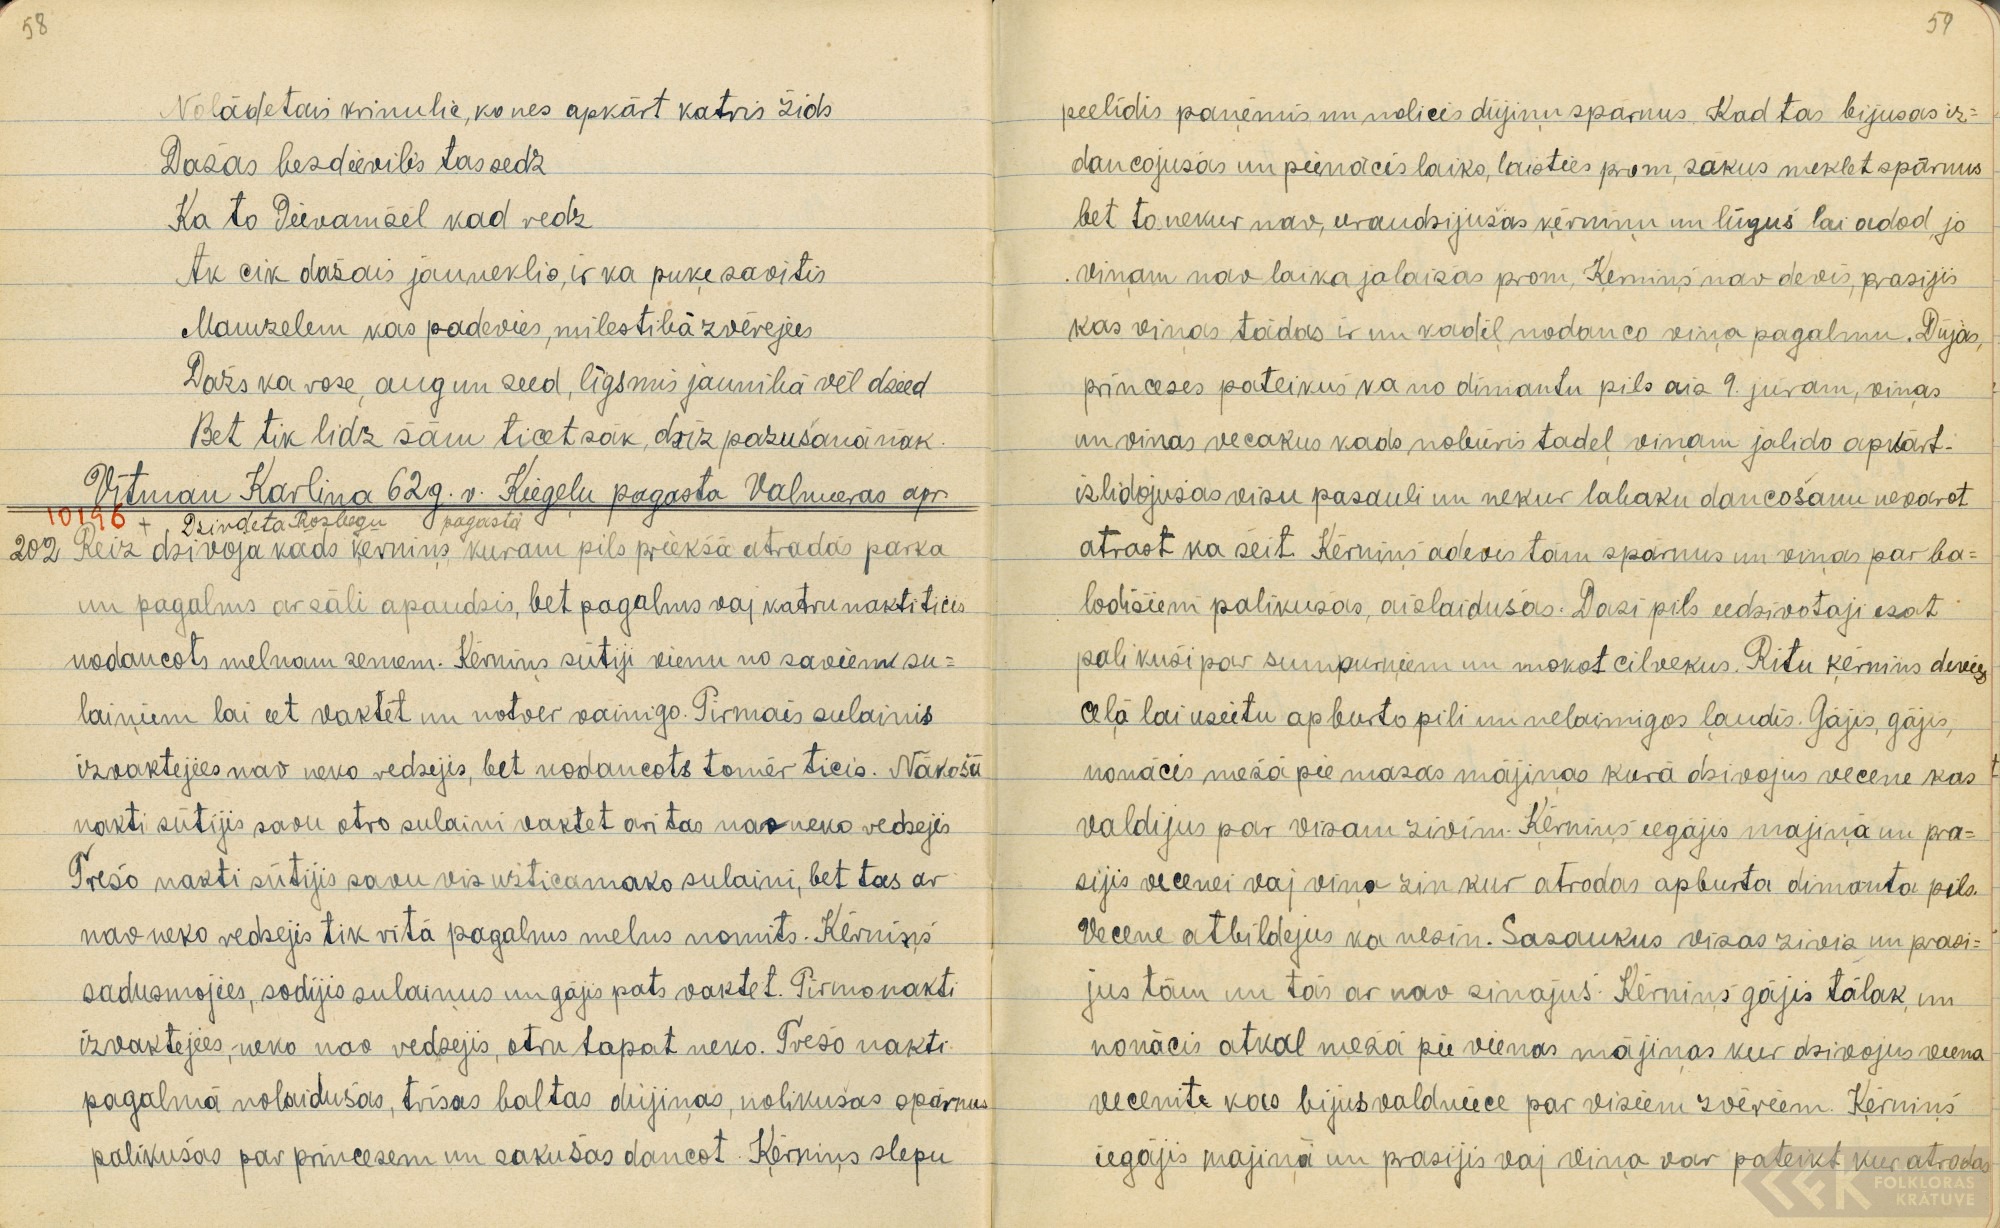 58
Nolādetais krinulie, ko nes apkārt katris žids
Dažas bezdievibis tas sedz
Ka to Dievamžēl kad redz
Ak cik dažais jauneklis, ir ka puķe savitis
Mamzelem kas padevies, milestibā zvērejies
Dažs ka rose, aug un zeed, līgsmis jaunibā vēl dzied
Bet tik lidz šām ticet sāk, driz pazušanā nāk.
Vītman Karlīna 62g. v. Kiegeļu pagasta Valmieras apr.
10196 + Dzindeta Rozbegu pagastā
202 Reiz dzivoja kads ķerniņs, kuram pils priekšā atradās parka
un pagalms ar zāli apaudzis, bet pagalms vaj katru nakti ticis
nodancots melnam zemem. Kērniņs sūtiji vienu no saviem su=
laiņiem lai eet vaktēt un notver vainigo. Pirmais sulainis
izvaktejees nav neko redzejis, bet nodancots tomēr ticis. Nākošū
nakti sūtijis savu otro sulaini vaktet ari tas nav neko redzejis
Trešo nakti sūtijis savu vis uzticamako sulaini, bet tas ar
nav neko redzejis tik rītā pagalms melns nomīts. Kērniņš
sadusmojies, sodijis sulaiņus un gājis pats vaktet. Pirmo nakti
izvaktejees, neko nav redzejis, otru tapat neko. Trešo nakti
pagalmā nolaidušās, trīsas baltas dūjiņas, nolikušas spārnus
palikušas par princesem un sakušas dancot. Kērniņs slepu
59
peelīdis paņēmis un nolicis dūjiņu spārnus. Kad tas bijušas iz=
dancojušās un pienācis laiks, laisties prom, sākus meklet spārnus
bet to nekur nav, eraudzijušas kērniņu un lūguš lai adod, jo
viņam nav laika jalaižas prom, Kerniņš nav devis, prasijis
kas viņas tādas ir un kadēļ nodanco viņa pagalmu. Dūjas,
princeses pateikuš ka no dimantu pils aiz 9. juram, viņas
un viņas vecakus kads nobūris tadeļ viņam jalido apkārt.
izlidojušas visu pasauli un nekur labaku dancošanu nevarot
atrast ka šeit. Kērniņš adevis tām spārnus un viņas par ba=
lodīšiem palikušas, aizlaidušas. Daži pils eedzivotaji esat
palikuši par sumpurņiem un mokot cilvekus. Ritu ķērniņs devies
ceļā lai uzeitu apburto pili un nelaimigos ļaudis. Gājis, gājis,
nonācis mežā pie mazas mājiņas kurā dzivojus vecene kas
valdijus par visam zivīm. Kērniņš eegājis majiņā un pra=
sijis vecenei vaj viņa zin kur atrodas apburta dimanta pils.
Vecene atbildejus ka nezin. Sasaukus visas zivis un prasi=
jus tām un tās ar nav zinajuš. Kērniņš gājis tālak, un
nonācis atkal mežā pie vienas mājiņas kur dzivojus viena
vecenite kas bijus valdneece par viseem zvēreem. Ķērniņš
iegājis majiņā un prasijis vaj viņa var pateikt kur atrodas
LFK FOLKLORAS KRĀTUVE